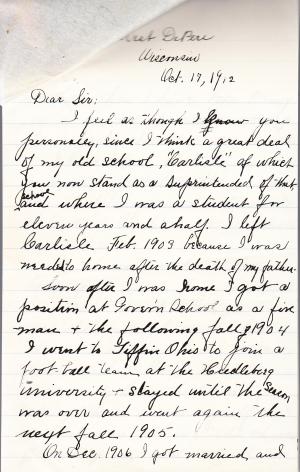 West DePere
Wisconsin
Oct. 17, 1912
Dear Sir:
I feel as though I know you
personaley, since I think a great deal
of my old school, "Carlisle" of which
you now stand as a Superintended of that
school
and where I was a student for
eleven years and a half. I left
Carlisle Feb. 1903 because I was
needed to home after the death of my father.
Soon after I was home I got a
position at Govern School as a fire
man & the following fall, 1904
I went to Tiffin Ohio to join a
foot ball team at the Heidleberg
University & stayed until the Season
was over and went again the
next fall 1905.
On Dec. 1906 I got married, and